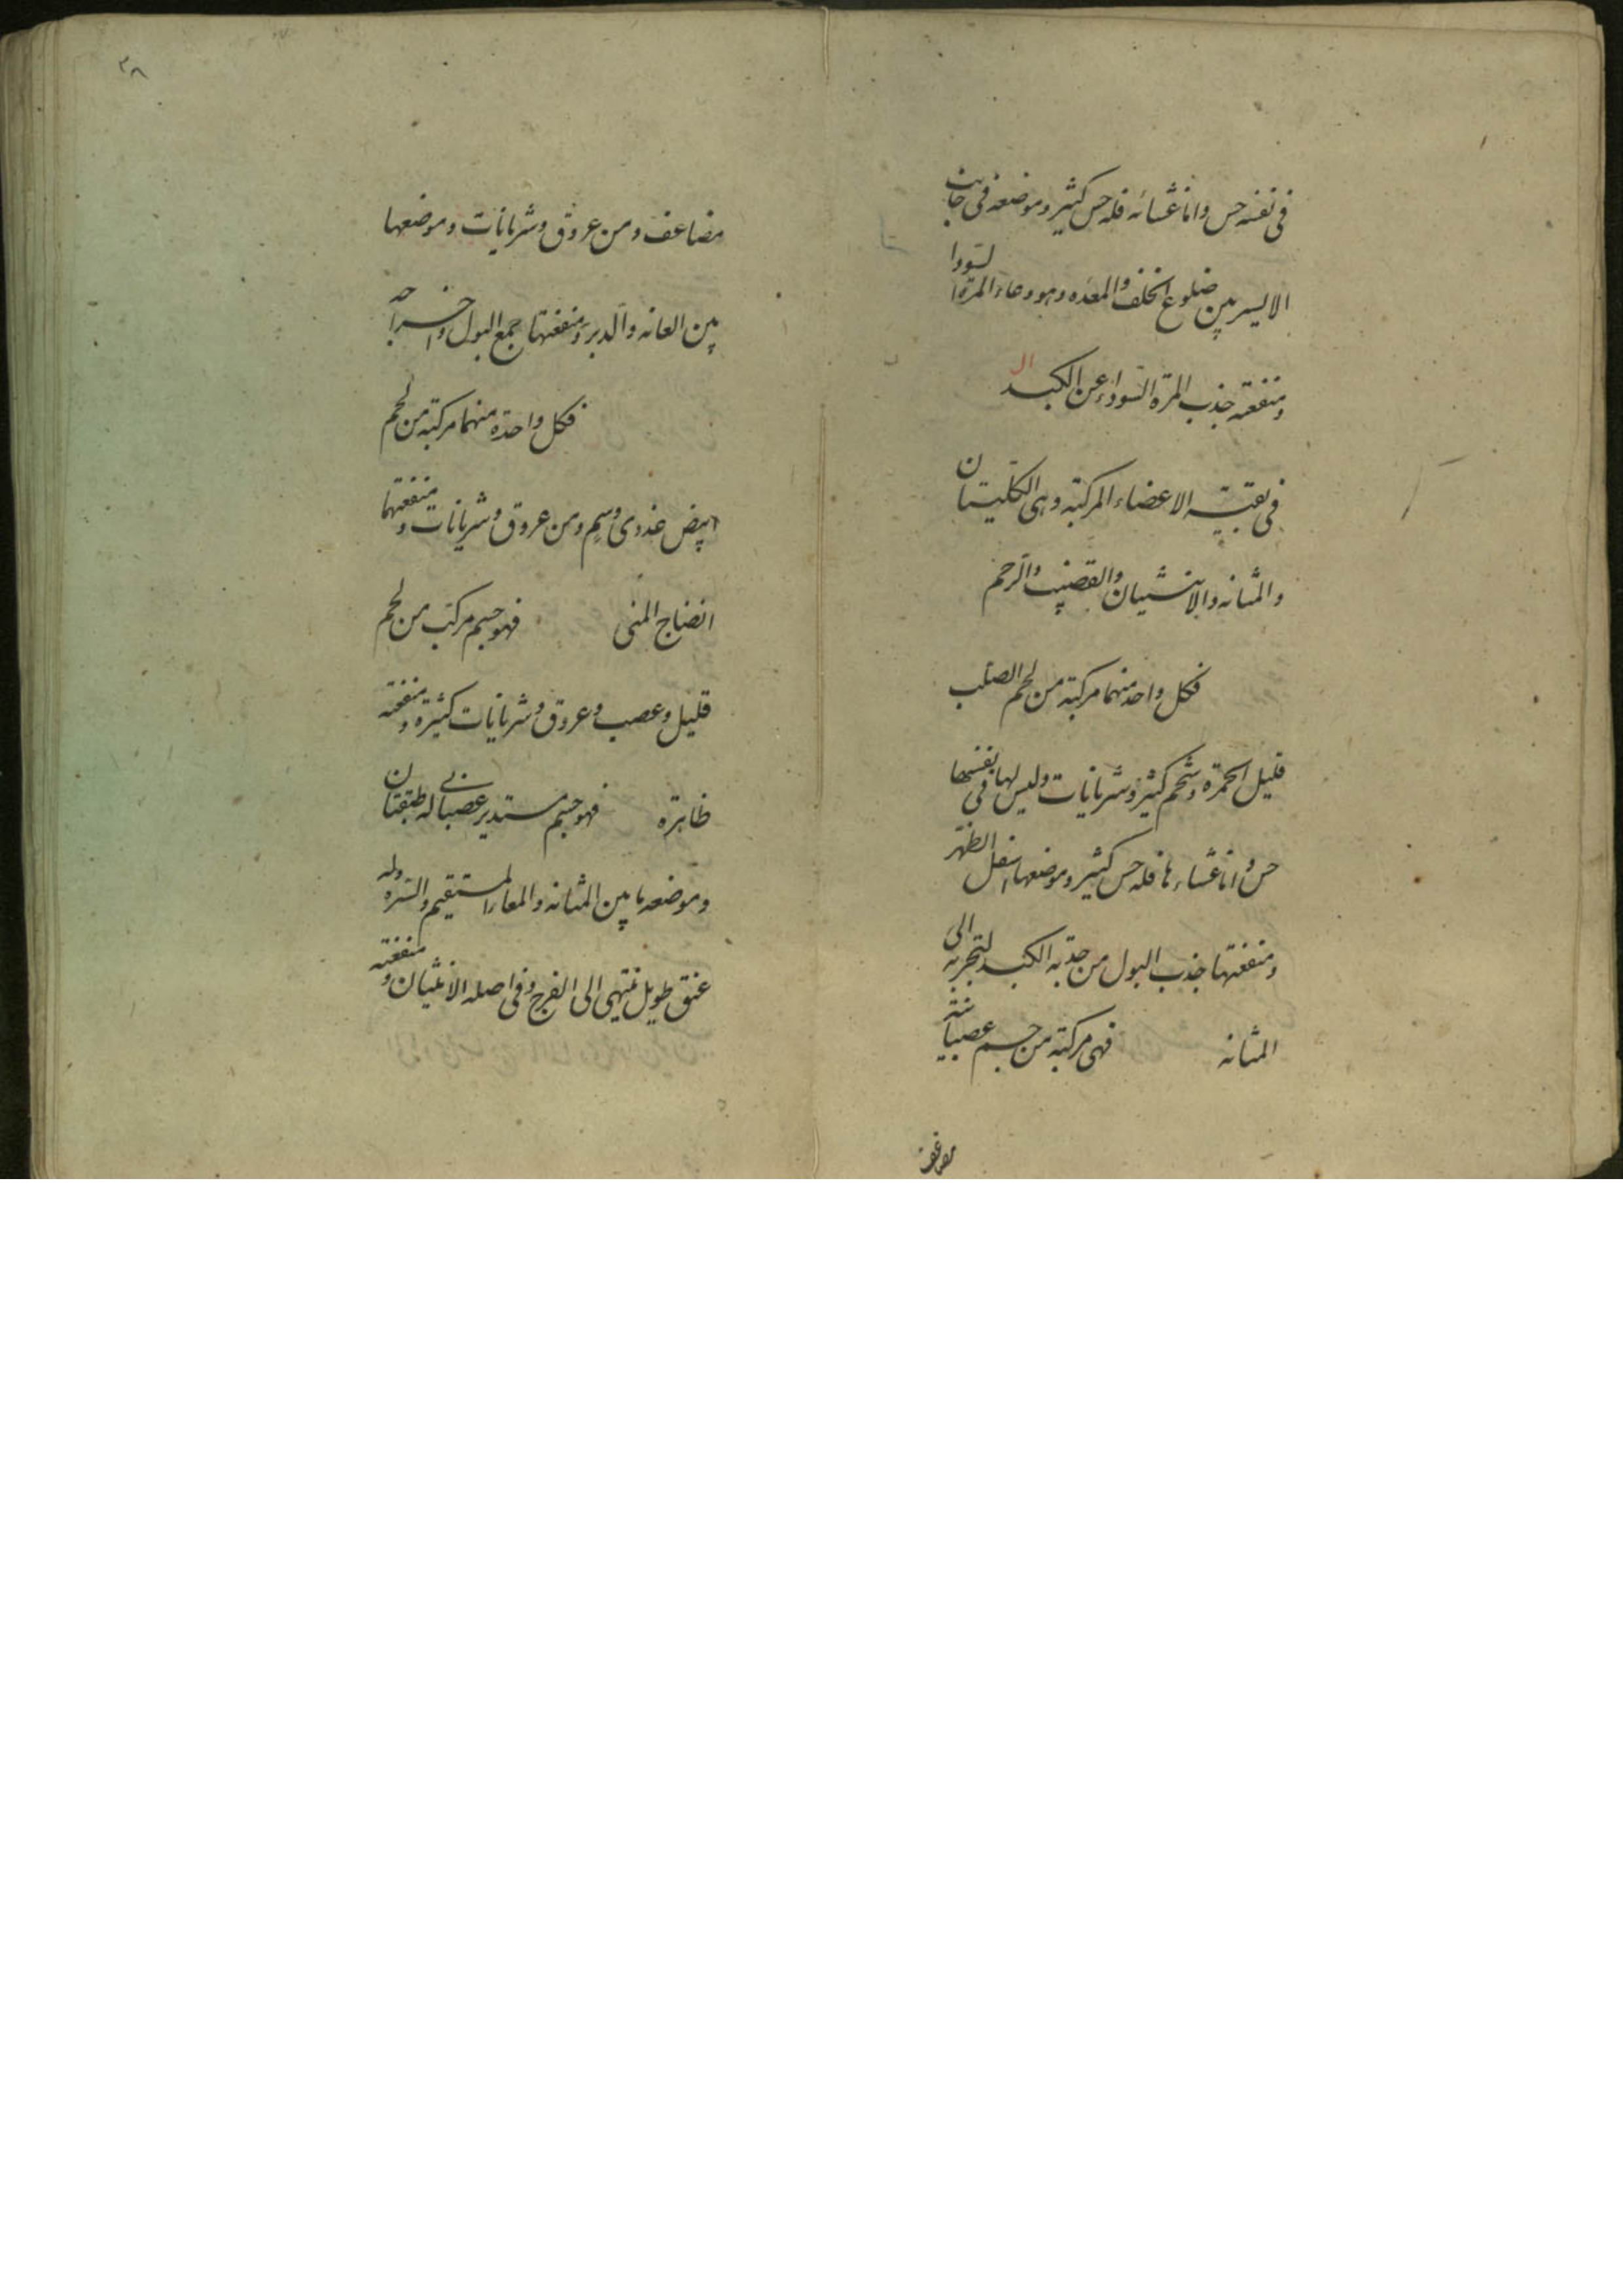 في نفسه حس واما غشائه فله حس كثير وموضعه في جانب
الايسر بين ضلوع الخلف والمعده وهو وعاء المرة السودا
ومنفعته جذب المرة السوداء عن الكبد
في بقية الاعضاء المركبة وهي الكليتان
والمثانه والانثيان والقضيب والرحم
فكل واحد منهما مركبة من لحم الصلب
قليل الحمرة وشحم كثير وشريانات وليس لها في نفسها
حس واما غشاءها فله حس كثير وموضعها اسفل الظهر
ومنفعتها جذب البول من حدبة الكبد الى
المثانه فهي مركبة من جسم عصبانية
مضاعف
٣٨
مضاعف ومن عروق وشريانات وموضعها
بين العانه والدبر ومنفعتها جمع البول واخراجه
فكل واحدة منهما مركبة من لحم
ابيض غددى وسم ومن عروق وشريانات ومنفعتهما
انضاج المنى فهو جسم مركب من لحم
قليل وعصب وعروق وشريانات كثيرة ومنفعته
ظاهرة فهو جسم مستدير عصبانى له طبقتان
وموضعه ما بين المثانه والمعاء المستقيم والسره وله
عنق طويل ينتهى الى الفرج وفي اصله الانثيان ومنفعته